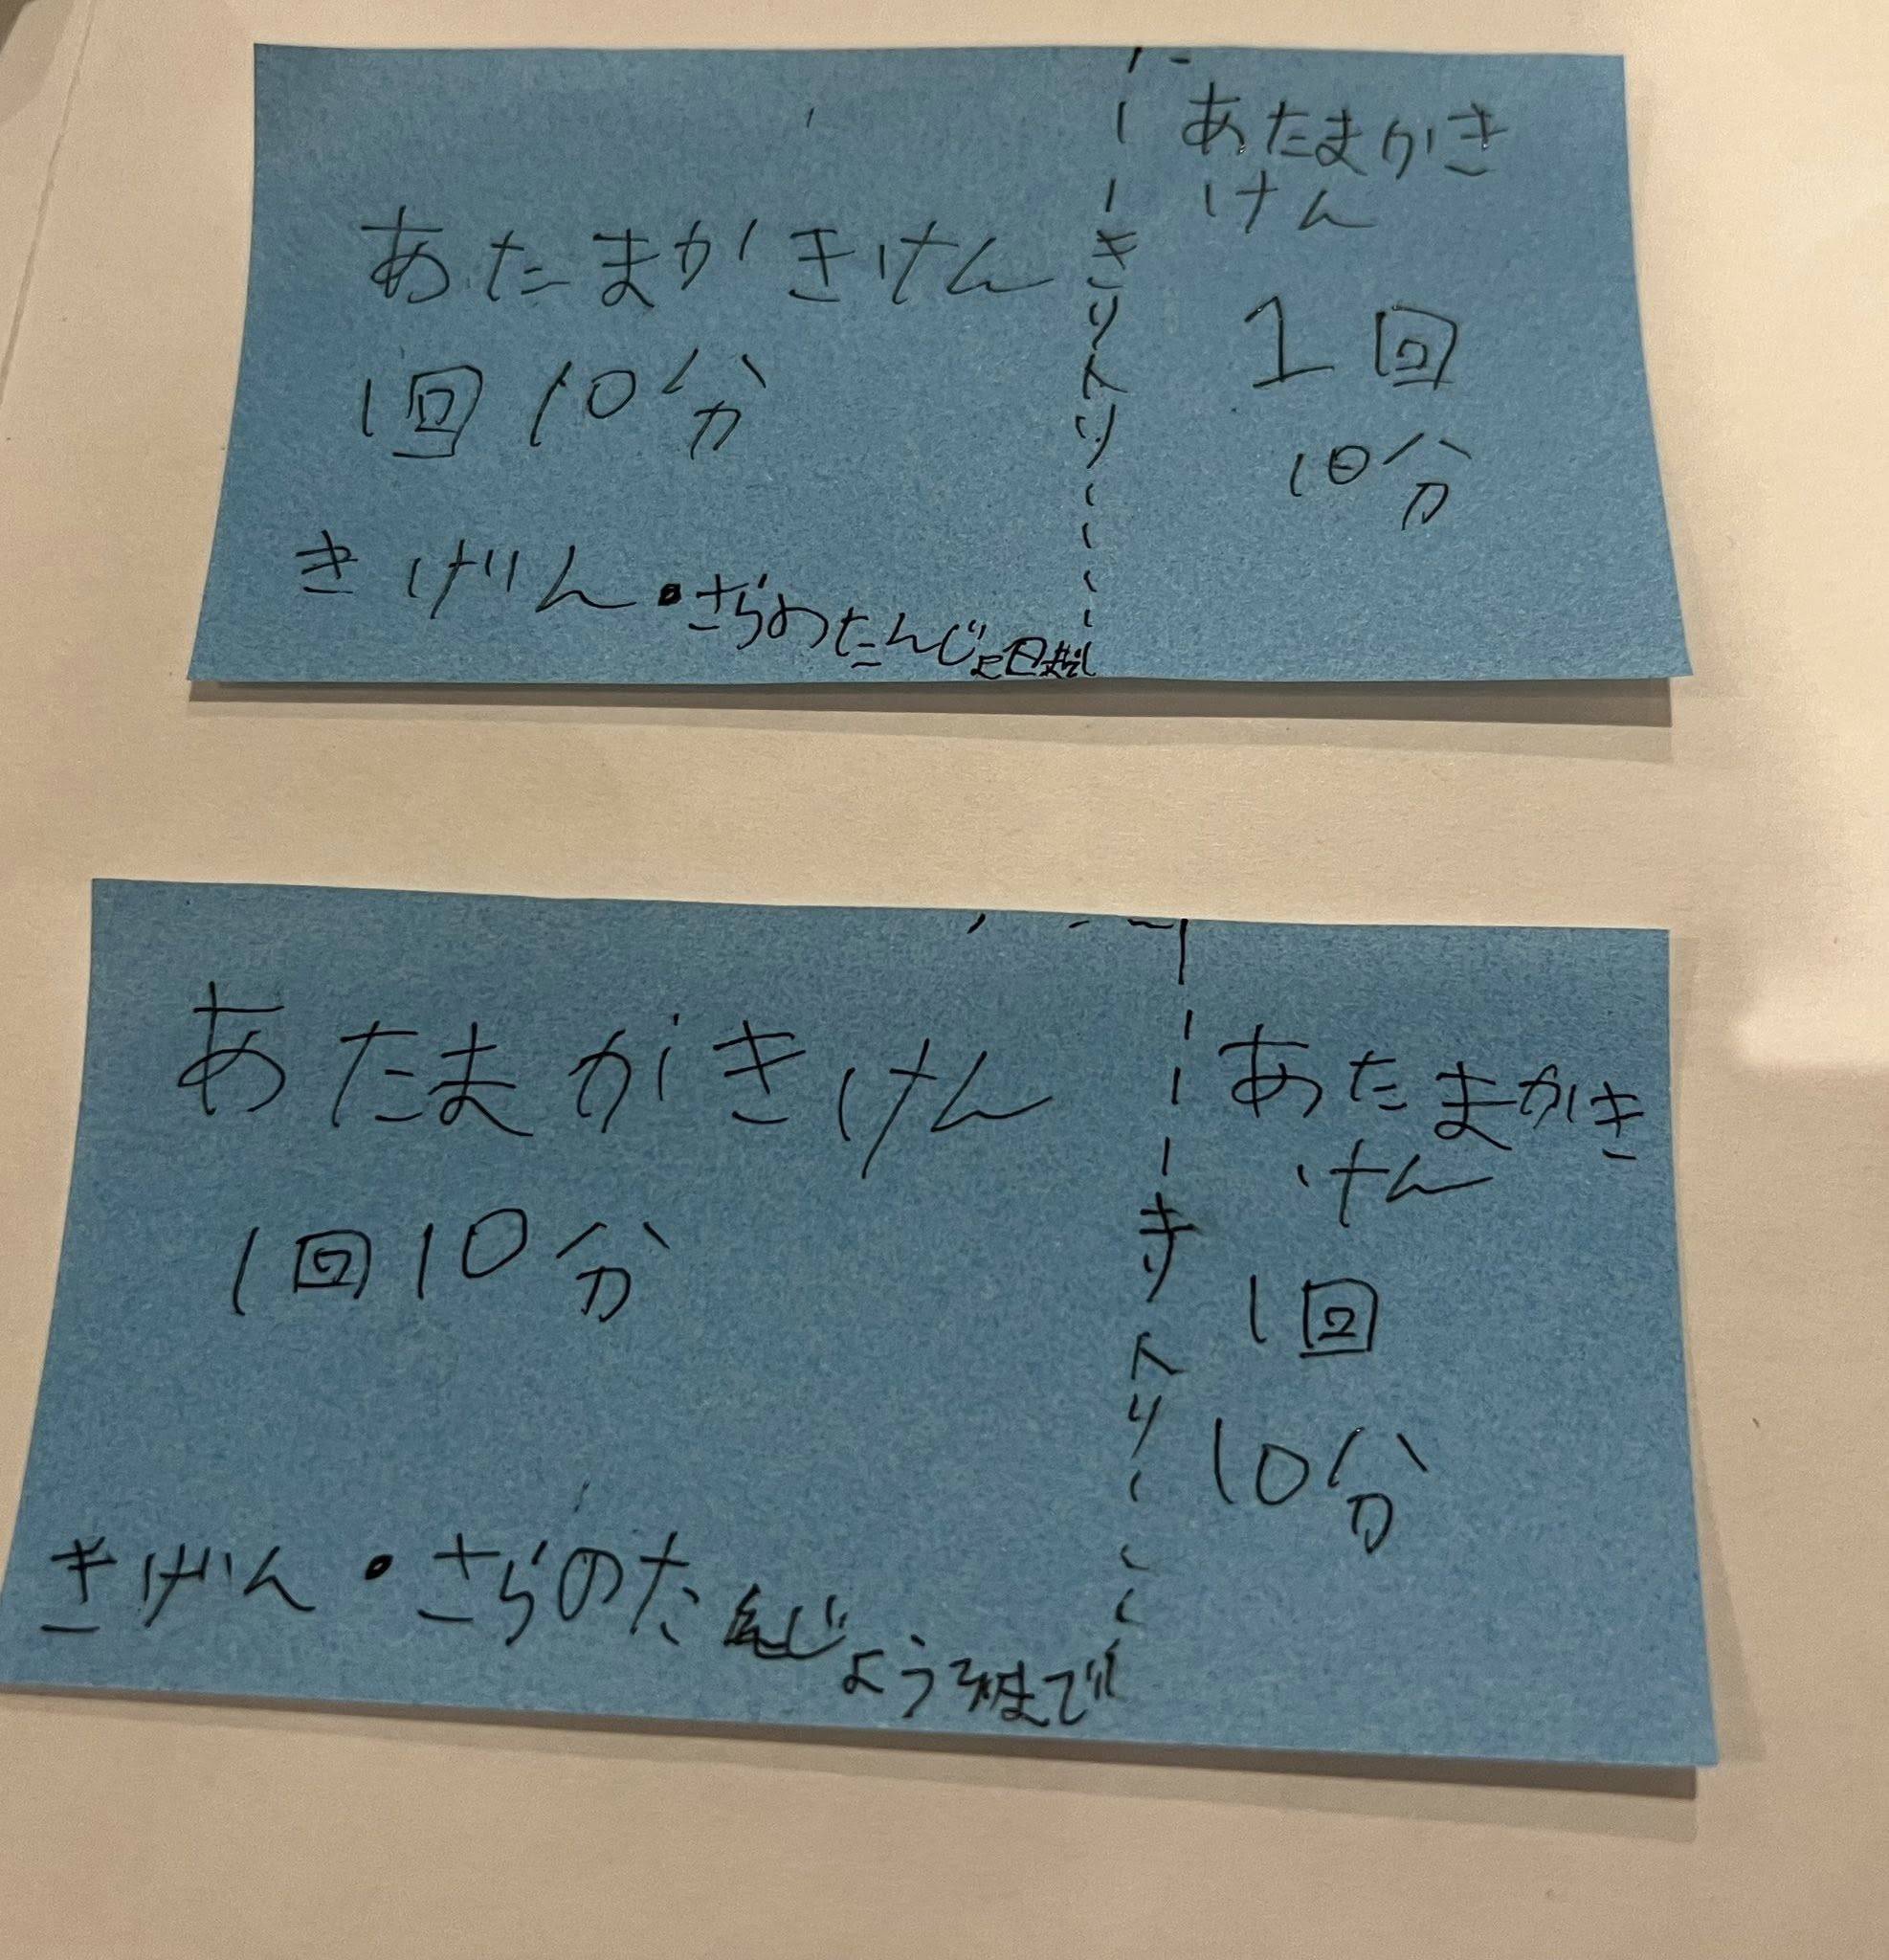 あたまかきけん
1回10分
きげん・さらのたんじょ日まで
きりトリ
あたまかき
けん
1回
10分
あたまがきけん
1回10分
きげん・さらのたんじ
ょう日まで
きりトリ
あたまかき
けん
1回
10分